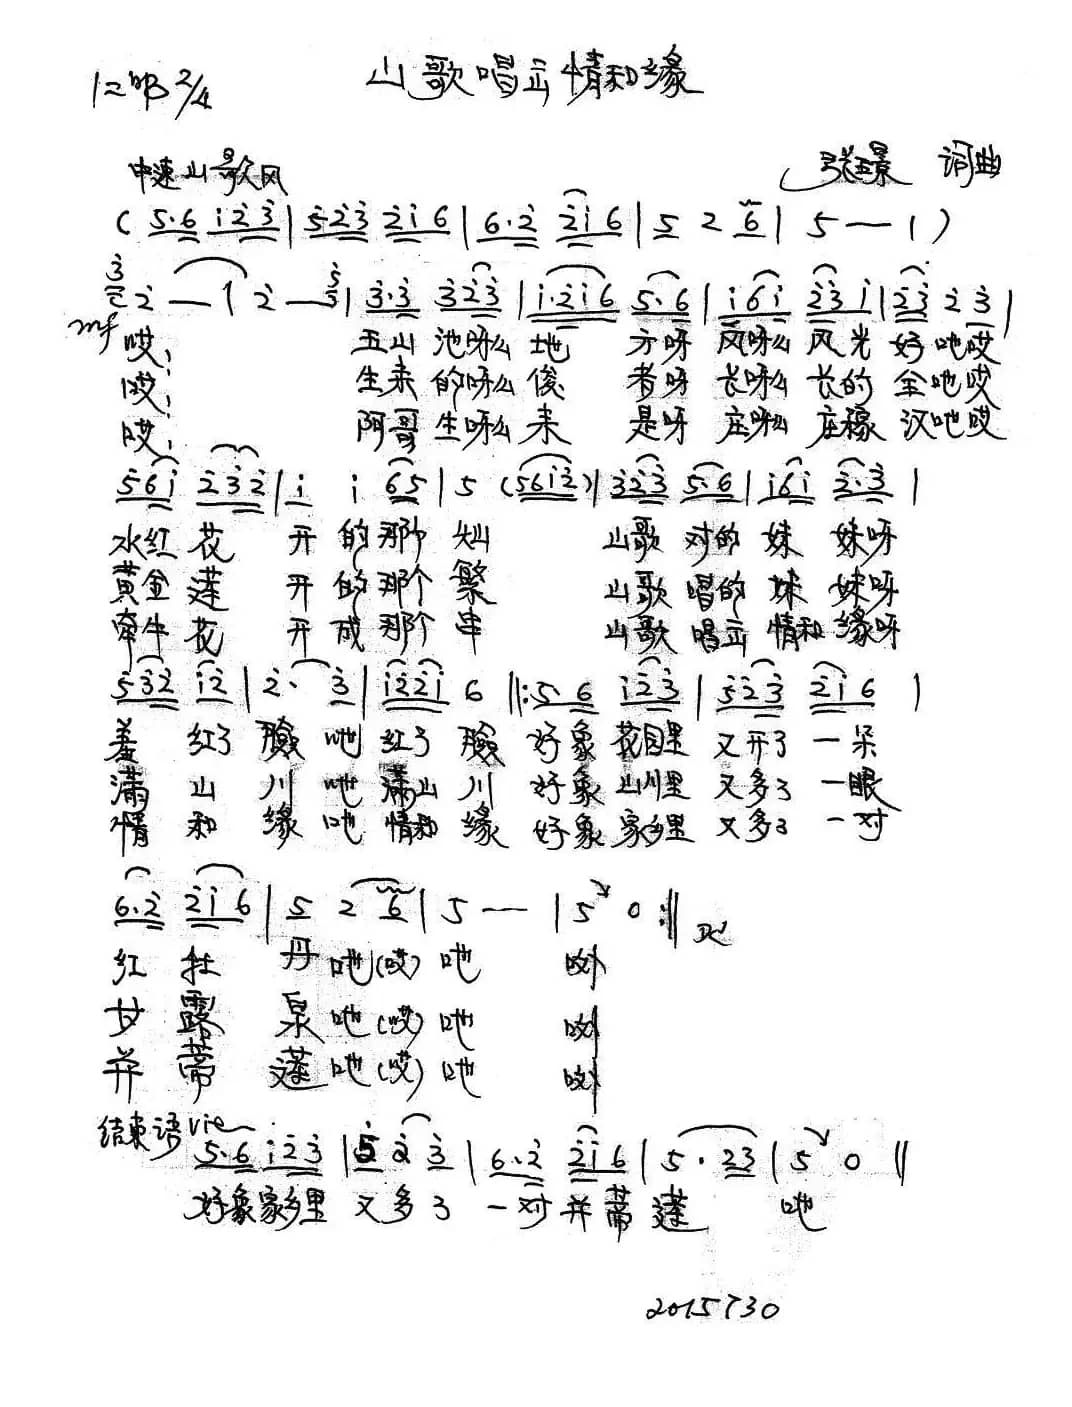 山歌唱出情和缘
1=bB 2/4
中速 山歌风
词曲
( 5·6 i23 | 523 2i6 | 6·2 2i6 | 5 2 6 | 5 — 1 )
2 — 1 2 — | 3·3 323 | i·2i6 5·6 | i6i 23i | 23 2 3 |
mf 哎, 五山池呀么地 方呀 风呀么风光好吔哎
哎, 生来的呀么俊 者呀 长呀么长的全吔哎
哎, 阿哥生呀么来 是呀 庄呀么庄稼汉吔哎
56i 232 | i i 65 | 5 (56i2) | 323 5·6 | i6i 2·3 |
水红花 开的那个灿 山歌对的妹妹呀
黄金莲 开的那个繁 山歌唱的妹妹呀
牵牛花 开成那个串 山歌唱出情和缘呀
532 i2 | 2· 3 | i22i 6 ‖: 5·6 i23 | 523 2i6 |
羞红了脸吔红了脸 好象花园里又开了一朵
满山川吔满山川 好象山川里又多了一眼
情和缘吔情和缘 好象家乡里又多了一对
6·2 2i6 | 5 2 6 | 5 — | 5 0 :‖
红牡丹吔(哎)吔 哟
甘露泉吔(哎)吔 哟
并蒂莲吔(哎)吔 哟
结束语
5·6 i23 | 5 2 3 | 6·2 2i6 | 5·23 | 5 0 ‖
好象家乡里又多了一对并蒂莲 吔
2015730